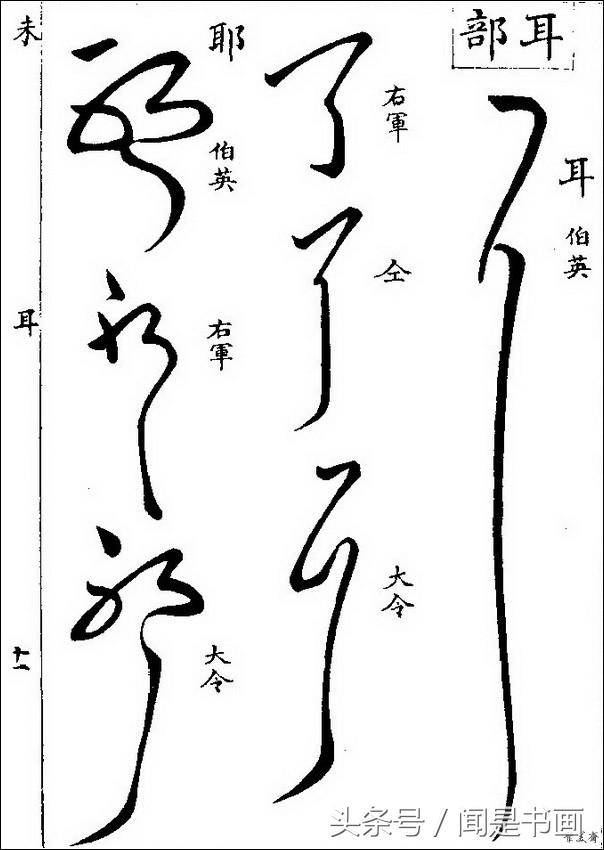 耳部
耳
伯英
耳
右軍
耳
仝
耳
大令
耳
耶
伯英
耶
右軍
耶
大令
耶
未
耳
十一
头条号 / 闻是书画